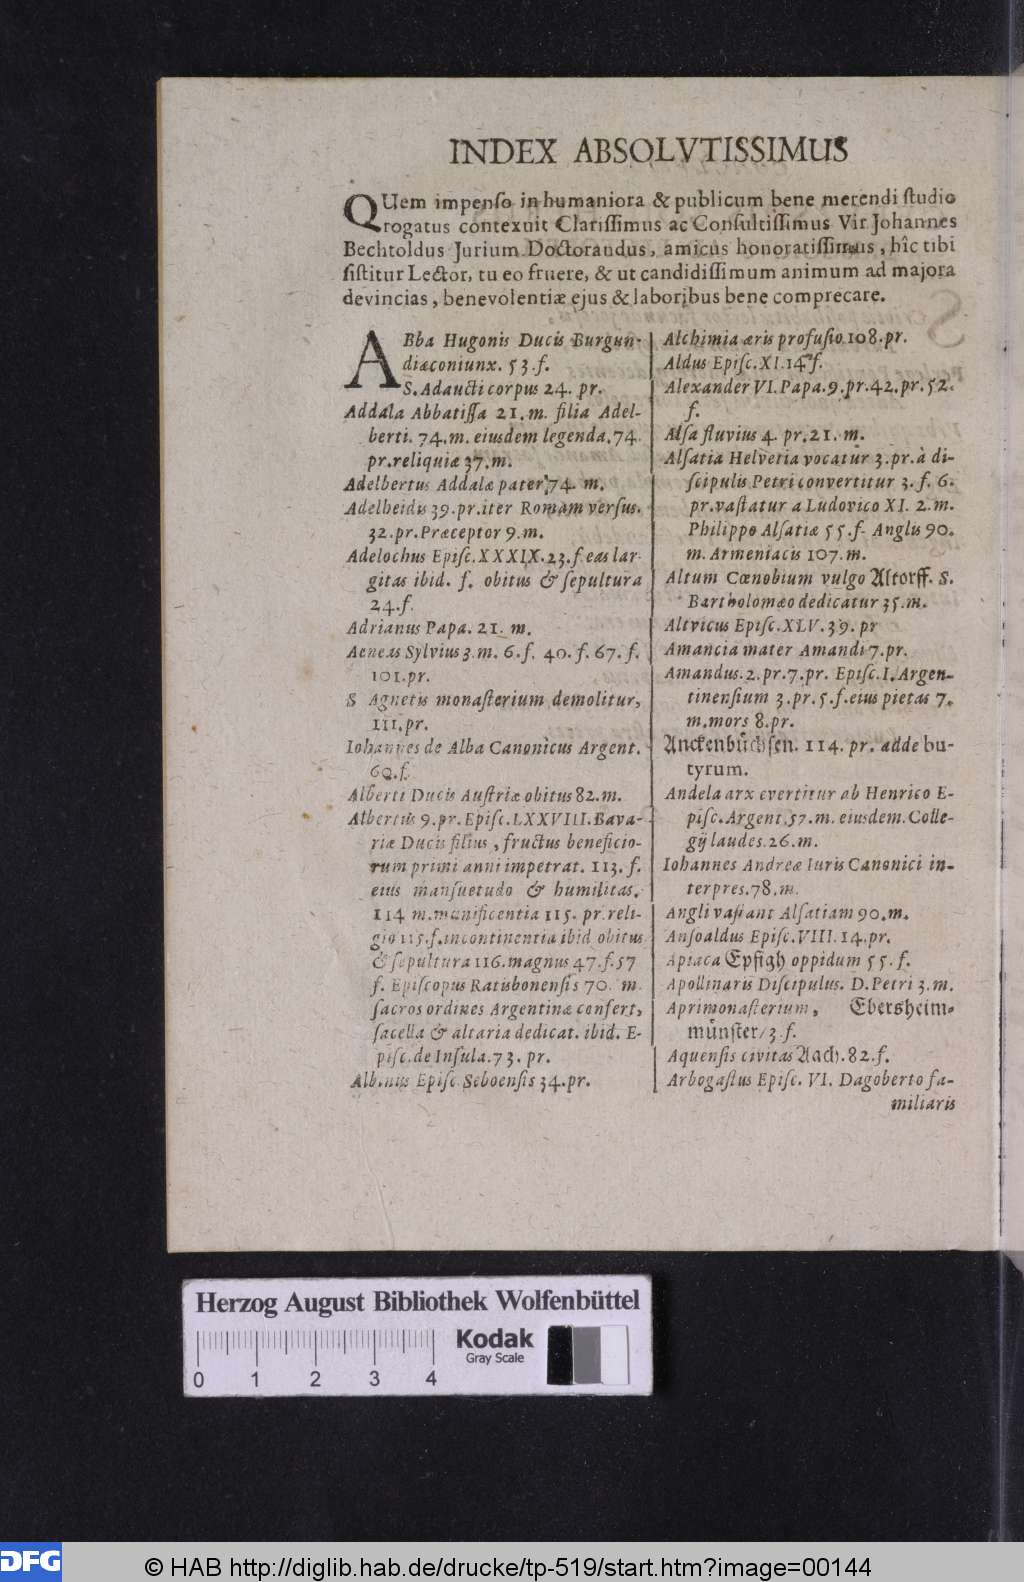 INDEX ABSOLVTISSIMUS
QUem impenso in humaniora & publicum bene merendi ſtudio
rogatus contexuit Clariſſimus ac Conſultiſſimus Vir Johannes
Bechtoldus Jurium Doctorandus, amicus honoratiſſimus, hîc tibi
ſiſtitur Lector, tu eo fruere, & ut candidiſſimum animum ad majora
devincias, benevolentiæ ejus & laboribus bene comprecare.
ABba Hugonis Ducis Burgun-
diæ coniunx. 53. f.
S. Adaucti corpus 24. pr.
Addala Abbatiſſa 21. m. filia Adel-
berti. 74. m. eiusdem legenda. 74.
pr. reliquiæ 37. m.
Adelbertus Addalæ pater 74. m.
Adelheidis 39. pr. iter Romam verſus.
32. pr. Præceptor 9. m.
Adelochus Epiſc. XXXIX. 23. f. eas lar-
gitas ibid. f. obitus & ſepultura
24. f.
Adrianus Papa. 21. m.
Aeneas Sylvius 3. m. 6. f. 40. f. 67. f.
101. pr.
S Agnetis monaſterium demolitur,
111. pr.
Iohannes de Alba Canonicus Argent.
60. f.
Alberti Ducis Auſtriæ obitus 82. m.
Albertus 9. pr. Epiſc. LXXVIII. Bava-
riæ Ducis filius, fructus beneficio-
rum primi anni impetrat. 113. f.
eius manſuetudo & humilitas.
114 m. munificentia 115. pr. reli-
gio 115. f. incontinentia ibid obitus
& ſepultura 116. magnus 47. f. 57
f. Epiſcopus Ratisbonenſis 70. m.
ſacros ordines Argentinæ confert,
ſacella & altaria dedicat. ibid. E-
piſc. de Inſula. 73. pr.
Albinus Epiſc. Seboenſis 34. pr.
Alchimia æris profuſio 108. pr.
Aldus Epiſc. XI. 14. f.
Alexander VI. Papa. 9. pr. 42. pr. 52.
f.
Alſa fluvius 4. pr. 21. m.
Alſatia Helvetia vocatur 3. pr. à di-
ſcipulis Petri convertitur 3. f. 6.
pr. vaſtatur a Ludovico XI. 2. m.
Philippo Alſatiæ 55. f. Anglis 90.
m. Armeniacis 107. m.
Altum Cœnobium vulgo Altorff. S.
Bartholomæo dedicatur 35. m.
Altvicus Epiſc. XLV. 39. pr
Amancia mater Amandi 7. pr.
Amandus. 2. pr. 7. pr. Epiſc. I. Argen-
tinenſium 3. pr. 5. f. eius pietas 7.
m. mors 8. pr.
Anckenbüchſen. 114. pr. adde bu-
tyrum.
Andela arx evertitur ab Henrico E-
piſc. Argent. 57. m. eiusdem Colle-
gij laudes. 26. m.
Iohannes Andreæ Iuris Canonici in-
terpres. 78. m.
Angli vaſtant Alſatiam 90. m.
Anſoaldus Epiſc. VIII. 14. pr.
Apiaca Epfigh oppidum 55. f.
Apollinaris Diſcipulus. D. Petri 3. m.
Aprimonaſterium, Ebersheim-
münſter/ 3. f.
Aquenſis civitas Aach. 82. f.
Arbogaſtus Epiſc. VI. Dagoberto fa-
miliaris
Herzog August Bibliothek Wolfenbüttel
Kodak
Gray Scale
0 1 2 3 4
DFG © HAB http://diglib.hab.de/drucke/tp-519/start.htm?image=00144